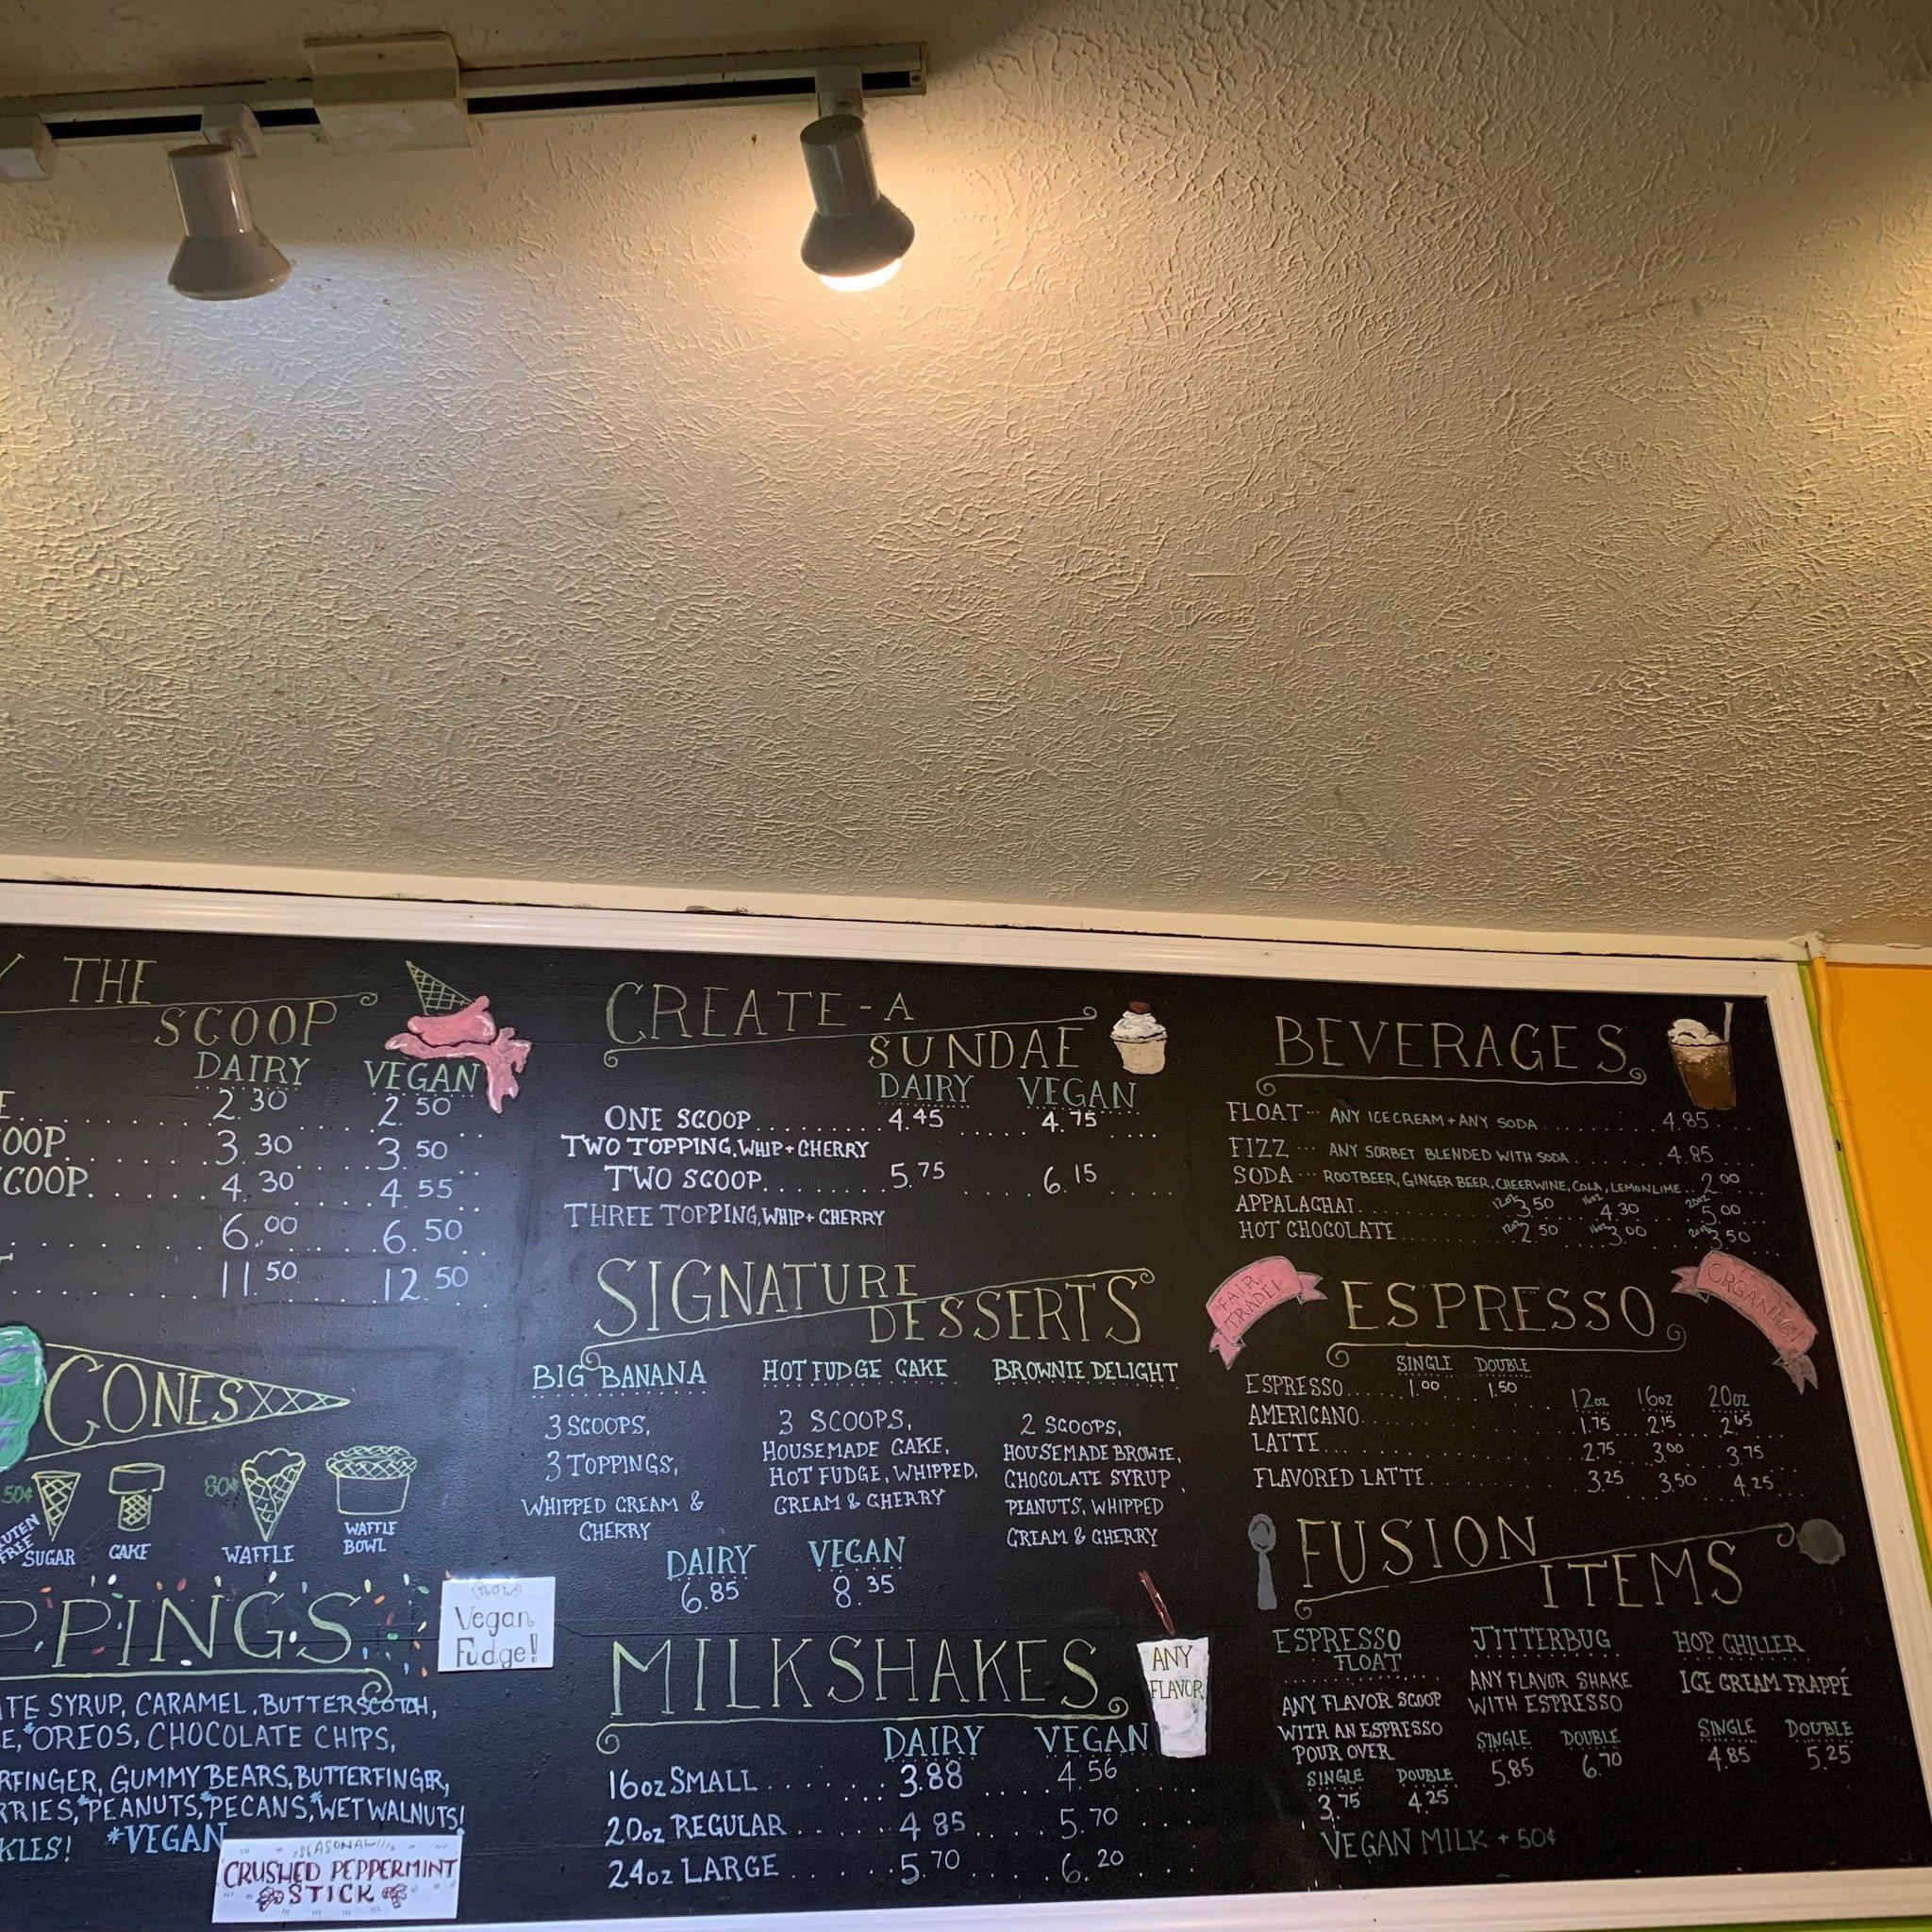 THE
SCOOP
DAIRY VEGAN
2.30 2.50
OOP 3.30 3.50
COOP 4.30 4.55
6.00 6.50
11.50 12.50
CONES
50¢ 80¢
FREE
SUGAR CAKE WAFFLE WAFFLE
BOWL
PPINGS
NOW
Vegan
Fudge!
TE SYRUP, CARAMEL, BUTTERSCOTCH,
E, *OREOS, CHOCOLATE CHIPS,
RFINGER, GUMMY BEARS, BUTTERFINGER,
RRIES, *PEANUTS, *PECANS, *WET WALNUTS!
KLES! *VEGAN
SEASONAL
CRUSHED PEPPERMINT
STICK
CREATE-A
SUNDAE
DAIRY VEGAN
ONE SCOOP 4.45 4.75
TWO TOPPING, WHIP + CHERRY
TWO SCOOP 5.75 6.15
THREE TOPPING, WHIP + CHERRY
SIGNATURE
DESSERTS
BIG BANANA
3 SCOOPS,
3 TOPPINGS,
WHIPPED CREAM &
CHERRY
HOT FUDGE CAKE
3 SCOOPS,
HOUSEMADE CAKE,
HOT FUDGE, WHIPPED,
CREAM & CHERRY
BROWNIE DELIGHT
2 SCOOPS,
HOUSEMADE BROWIE,
CHOCOLATE SYRUP,
PEANUTS, WHIPPED
CREAM & CHERRY
DAIRY VEGAN
6.85 8.35
MILKSHAKES
ANY
FLAVOR
DAIRY VEGAN
16oz SMALL 3.88 4.56
20oz REGULAR 4.85 5.70
24oz LARGE 5.70 6.20
BEVERAGES
FLOAT ... ANY ICE CREAM + ANY SODA 4.85
FIZZ ... ANY SORBET BLENDED WITH SODA 4.85
SODA ... ROOTBEER, GINGER BEER, CHEERWINE, COLA, LEMONLIME 2.00
APPALACHAI 12oz 3.50 16oz 4.30 20oz 5.00
HOT CHOCOLATE 12oz 2.50 16oz 3.00 20oz 3.50
FAIR
TRADE!
ESPRESSO
ORGANIC!
SINGLE DOUBLE
ESPRESSO 1.00 1.50
12oz 16oz 20oz
AMERICANO 1.75 2.15 2.65
LATTE 2.75 3.00 3.75
FLAVORED LATTE 3.25 3.50 4.25
FUSION
ITEMS
ESPRESSO
FLOAT
ANY FLAVOR SCOOP
WITH AN ESPRESSO
POUR OVER
SINGLE DOUBLE
3.75 4.25
JITTERBUG
ANY FLAVOR SHAKE
WITH ESPRESSO
SINGLE DOUBLE
5.85 6.70
HOP CHILLER
ICE CREAM FRAPPÉ
SINGLE DOUBLE
4.85 5.25
VEGAN MILK + 50¢